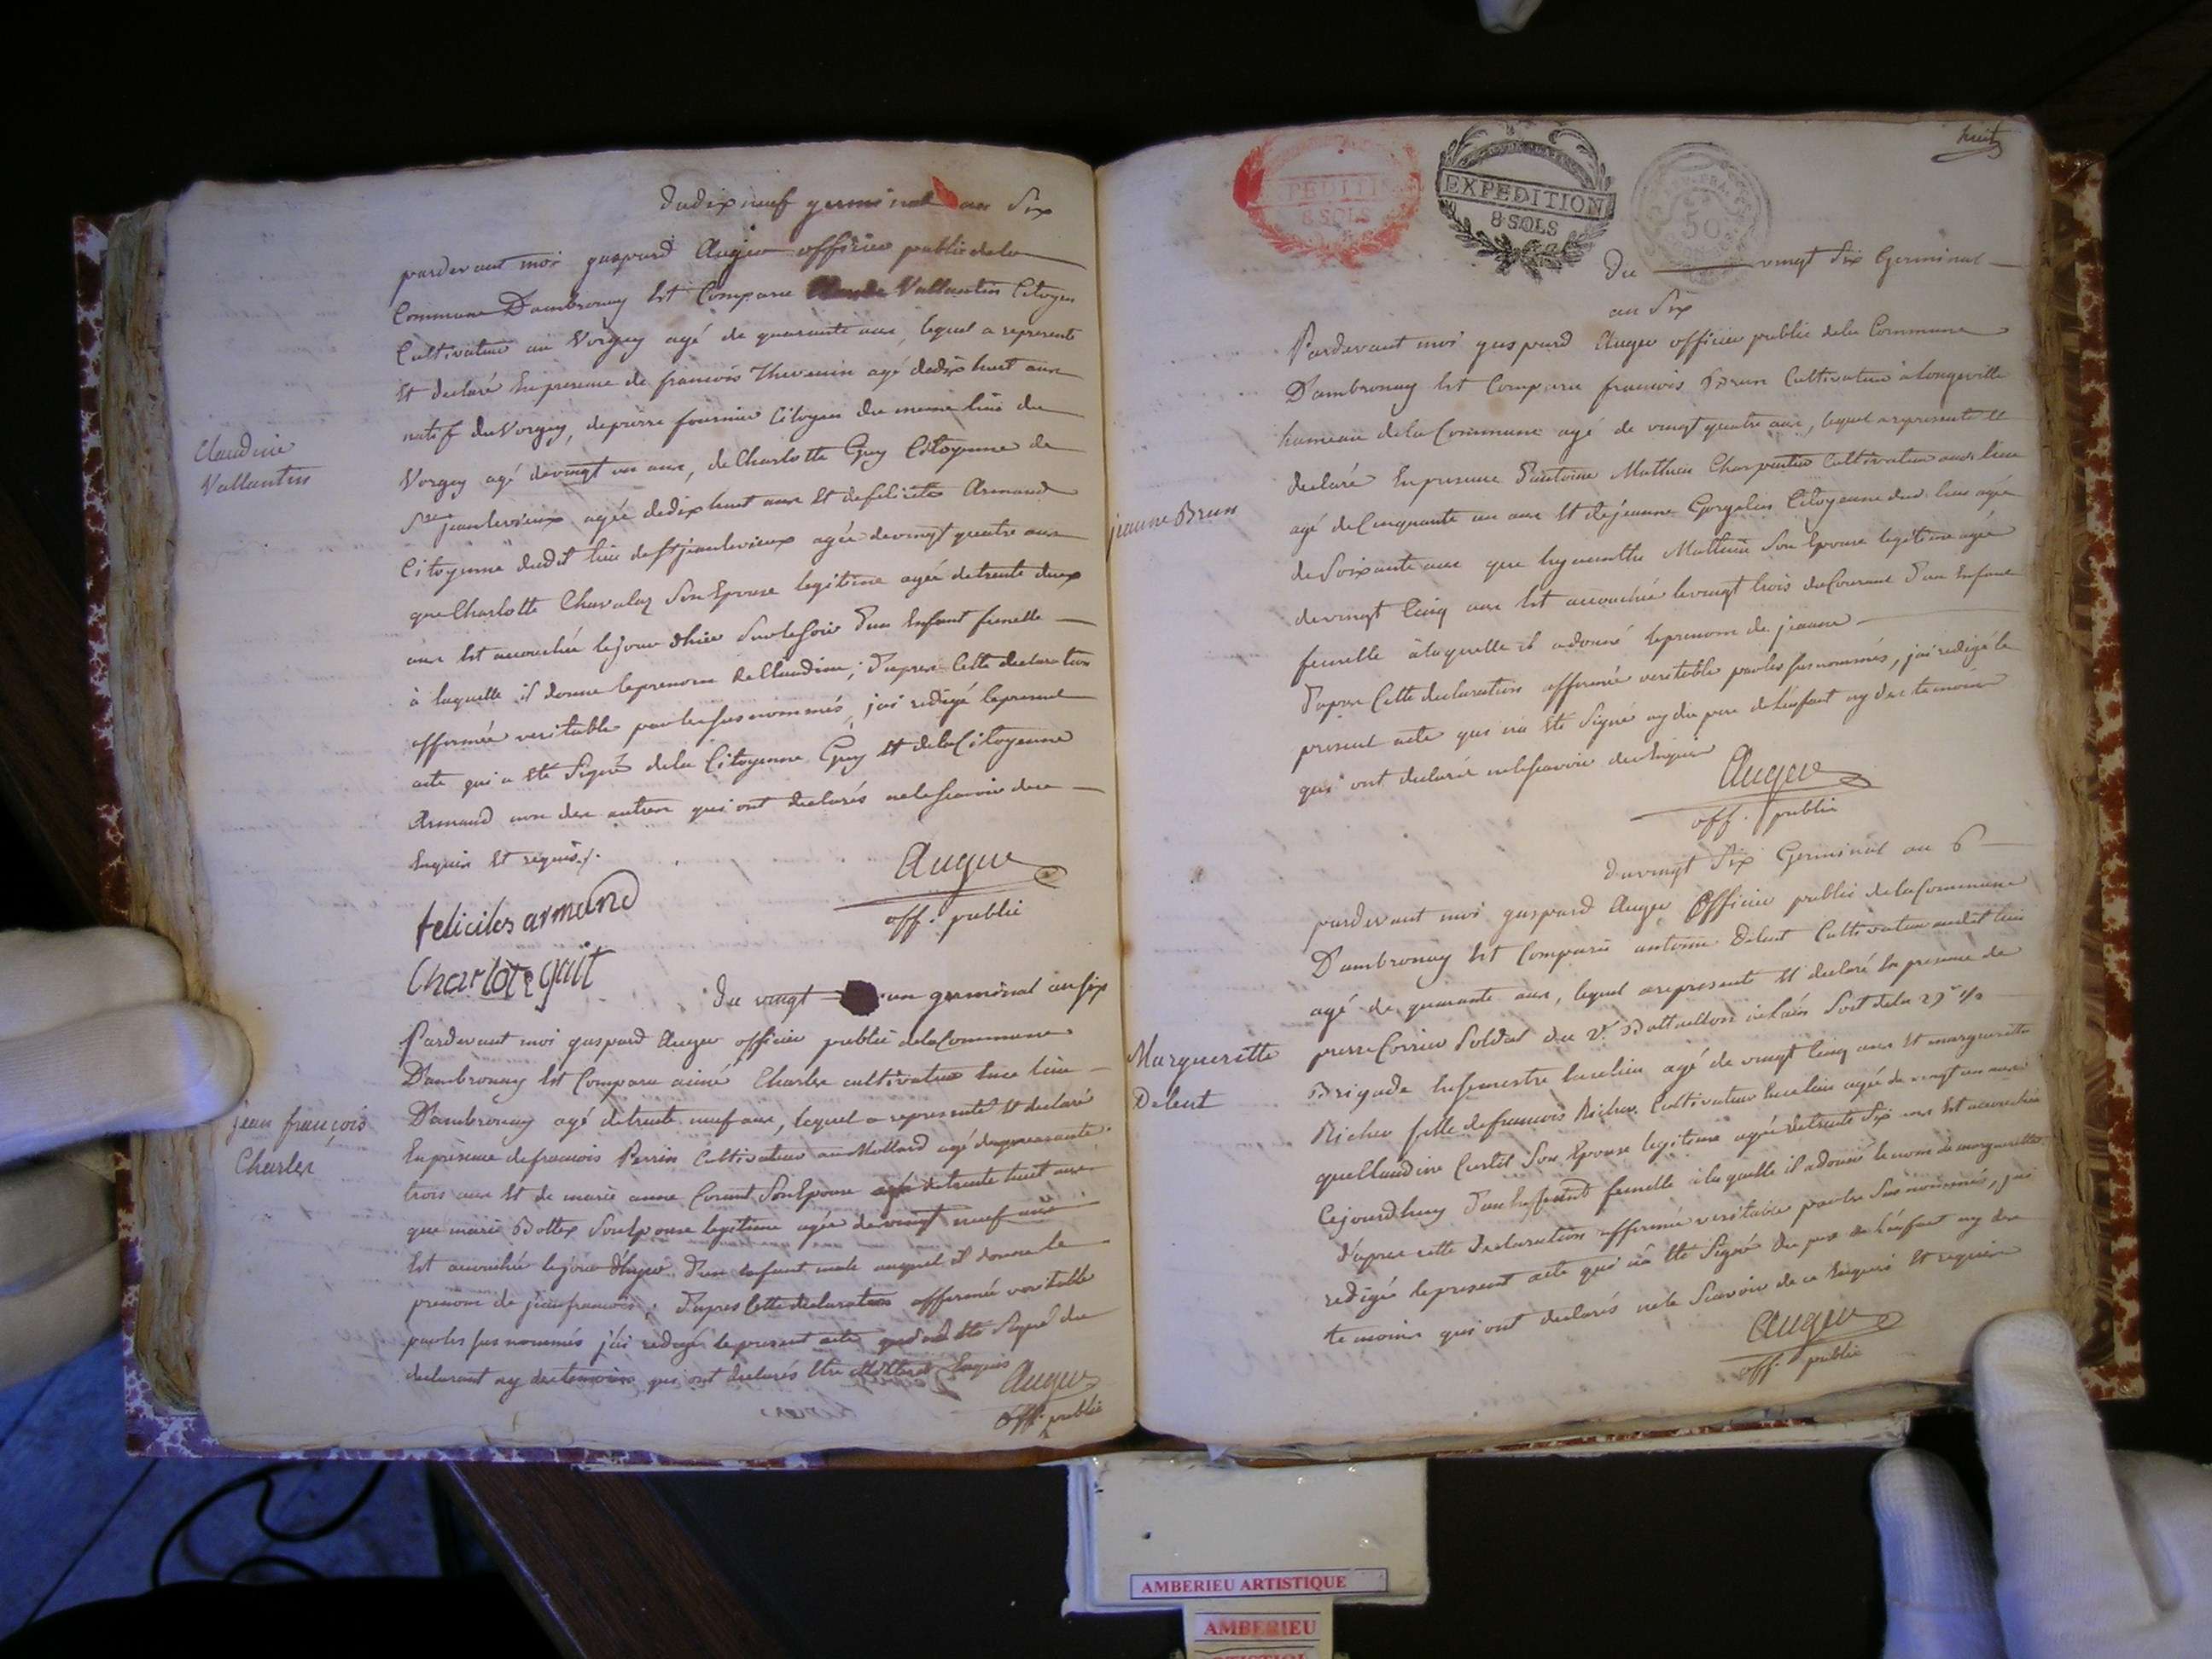 du dix neuf germinal an Six
pardevant moi gaspard Auger officier public dela
Commune D'ambronay Est Comparu Vallantin Citoyen
Cultivateur au Vorgey agé de quarante ans, lequel a representé
Et declaré En presence de francois Thevenin agé dedix huit ans
natif du Vorgey, de pierre fournier Citoyen du meme lieu du
Vorgey agé devingt un ans, de Charlotte Guy Citoyenne de
St jeanlevieux agée dedix huit ans Et de felicité Armand
Citoyenne dudit lieu de St jeanlevieux agée devingt quatre ans
que Charlotte Chavalaz Son Epouse legitime agée detrente deux
ans Est accouchée lejour dhier Sur le Soir d'un Enfant femelle
à laquelle il donne le prenom de Claudine; d'apres Cette declaration
affirmée veritable par les susnommés, j'ai redigé le present
acte qui a été Signé dela Citoyenne Guy Et dela Citoyenne
Armand non des autres qui ont declarés nele Scavoir de ce
Enquis Et requis ./.
Claudine
Vallantin
Auger
off. public
felicites armand
Charlote guit
Du vingt un germinal an six
Pardevant moi gaspard Auger officier public dela Commune
D'ambronay Est Comparu aimé Charles cultivateur Ence lieu
D'ambronay agé detrente neuf ans, lequel a representé Et declaré
En presence defrancois Perrin Cultivateur au Mollard agé dequarante
trois ans Et de marie anne Corant Son Epouse agée detrente huit ans
que marie Bottex Son Epouse legitime agée devingt neuf ans
Est accouchée lejour d'hyer d'un Enfant male auquel il donne le
prenom de jean francois; d'apres Cette declaration affirmée veritable
par les susnommés j'ai redigé le present acte qui n'a été Signé du
declarant ny des temoins qui ont declarés Etre Enquis
jean françois
Charles
Auger
off. public
huit
EXPEDITION
8 SOLS
EXPEDITION
8 SOLS
50
Du vingt Six Germinal
an Six
Pardevant moi gaspard Auger officier public dela Commune
D'ambronay Est Comparu francois Brun Cultivateur à longeville
hameau dela Commune agé de vingt quatre ans, lequel a representé Et
declaré En presence d'antoine Mathieu Charpentier Cultivateur aud. lieu
agé de Cinquante un ans Et de jeanne Gorgelin Citoyenne dud. lieu agée
de Soixante ans que hyacinthe Mathieu Son Epouse legitime agée
de vingt Cinq ans Est accouchée le vingt trois du Courant d'un Enfant
femelle à laquelle il a donné le prenom de jeanne
D'apres Cette declaration affirmée veritable par les susnommés, j'ai redigé le
present acte qui n'a été Signé ny du pere de l'enfant ny des temoins
qui ont declarés nele Scavoir de ce Enquis
jeanne Brun
Auger
off. public
du vingt Six Germinal an 6
pardevant moi gaspard Auger Officier public dela Commune
D'ambronay Est Comparu antoine Debeut Cultivateur audit lieu
agé de quarante ans, lequel a representé Et declaré En presence de
pierre Corrier Soldat du 2e. Battaillon de l'ain Soit dela
Brigade En Semestre Ence lieu agé de vingt Cinq ans Et marguerite
Richer fille defrancois Richer Cultivateur Ence lieu agée de vingt un ans
que Claudine Curtil Son Epouse legitime agée detrente Six ans Est accouchée
Cejourdhuy d'un Enfant femelle à laquelle il a donné le nom de marguerite
d'apres cette declaration affirmée veritable par les susnommés, j'ai
redigé le present acte qui n'a été Signé du pere de l'enfant ny des
temoins qui ont declarés nele Scavoir de ce Enquis Et requis
Marguerite
Debeut
Auger
off. public
AMBERIEU ARTISTIQUE
AMBERIEU